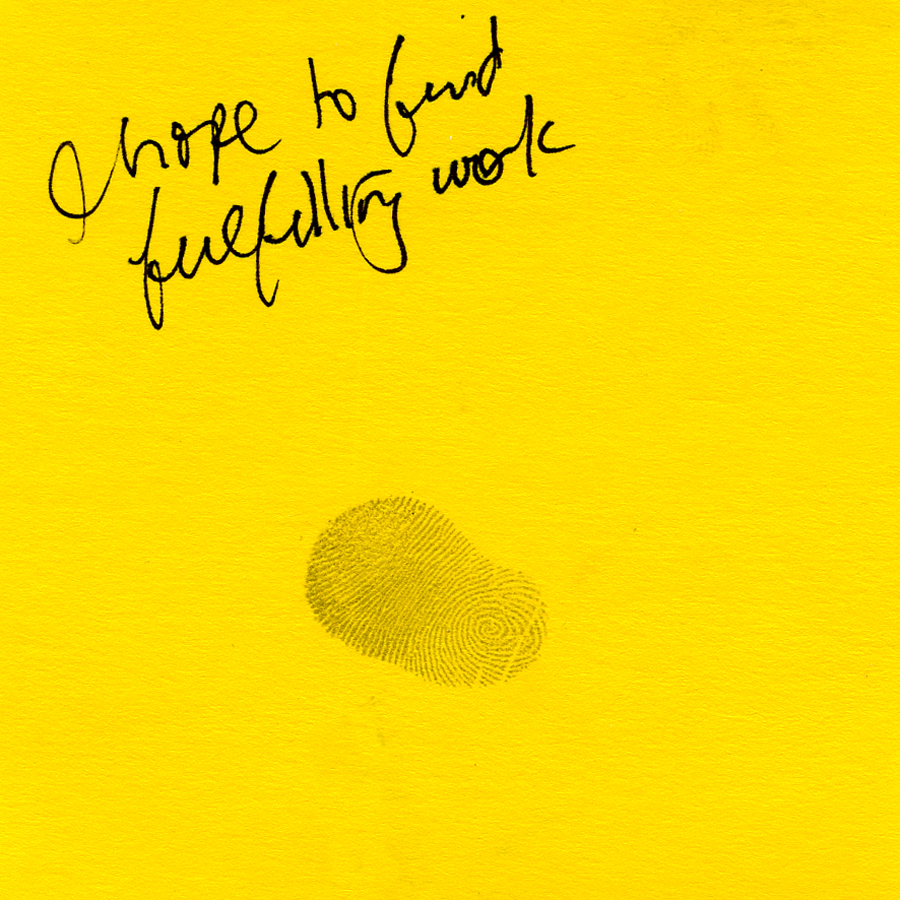 I hope to find
fulfilling work